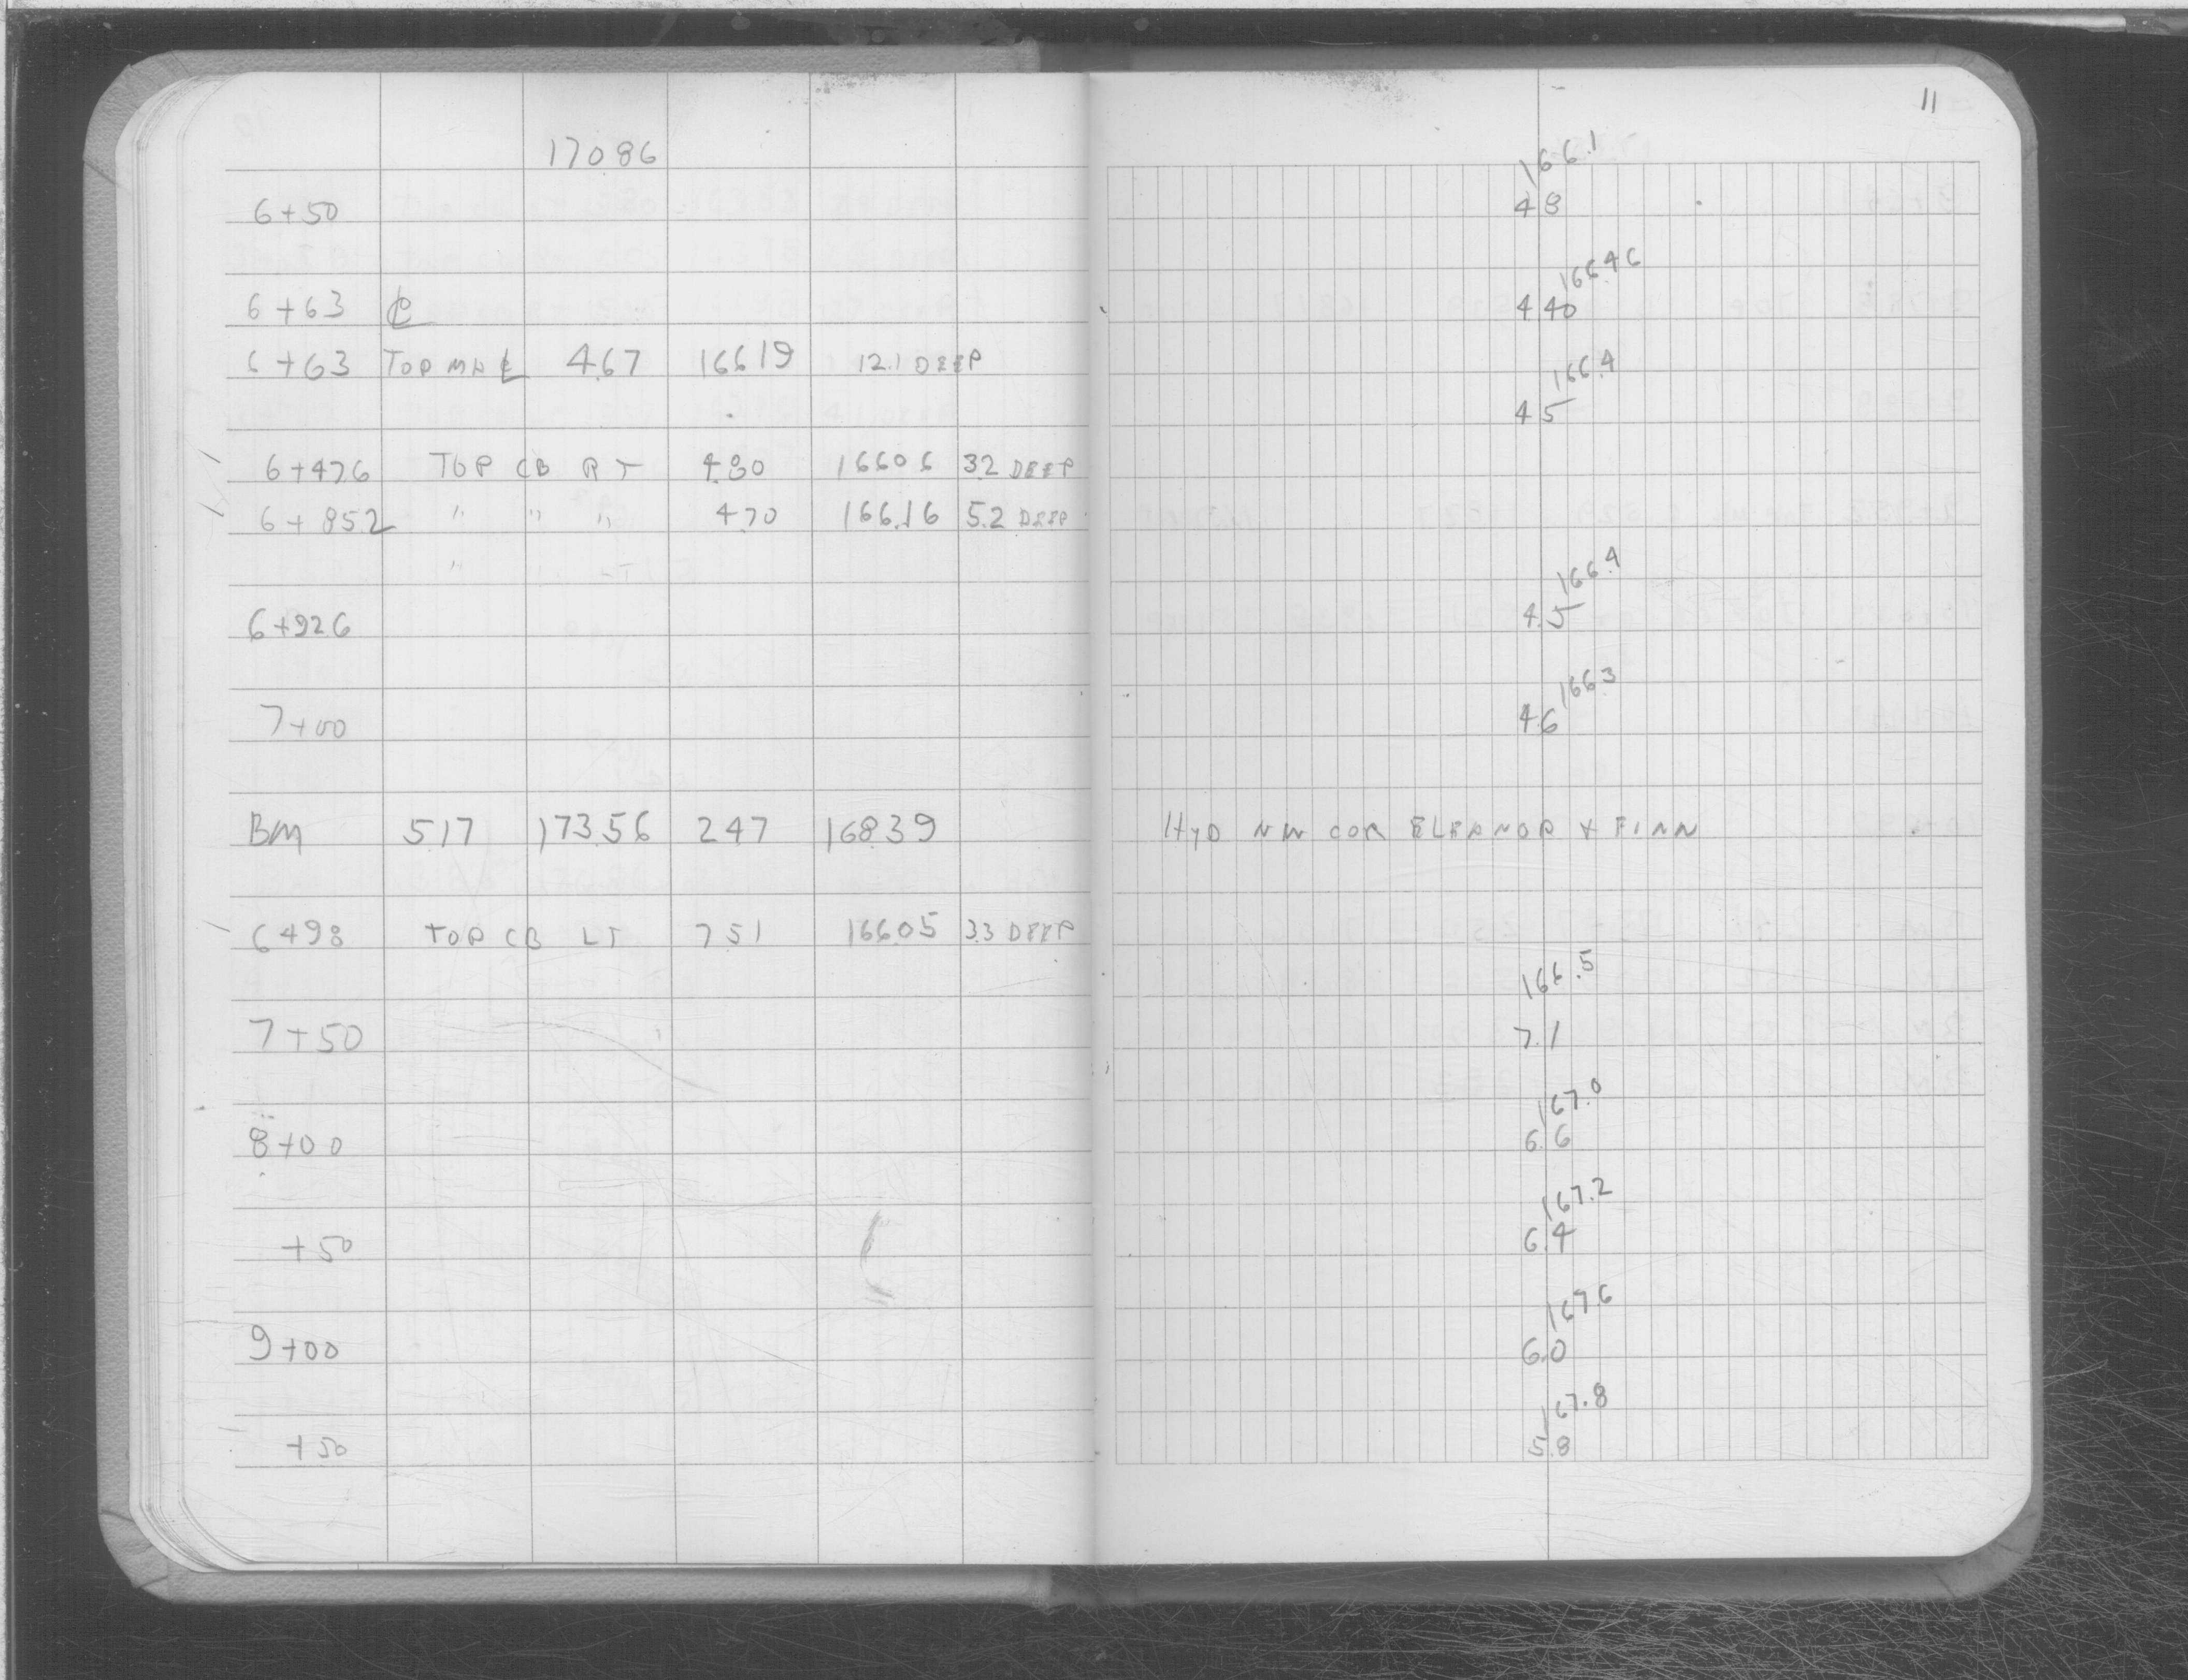 11
17086
166.1
6+50 4 8
166.46
6+63 ℄ 4 40
6+63 TOP MH ℄ 4.67 16619 12.1 DEEP
166.4
4 5
6+476 TOP CB RT 4.80 16606 32 DEEP
6+852 " " " 470 166.16 5.2 DEEP
166.4
6+926 4.5
166.3
7+00 4.6
BM 517 173.56 247 16839 HYD NW COR ELEANOR & FINN
6498 TOP CB LT 7 51 166.05 3.3 DEEP
166.5
7+50 7.1
167.0
8+00 6.6
167.2
+50 6.4
167.6
9+00 6.0
167.8
+50 5.8